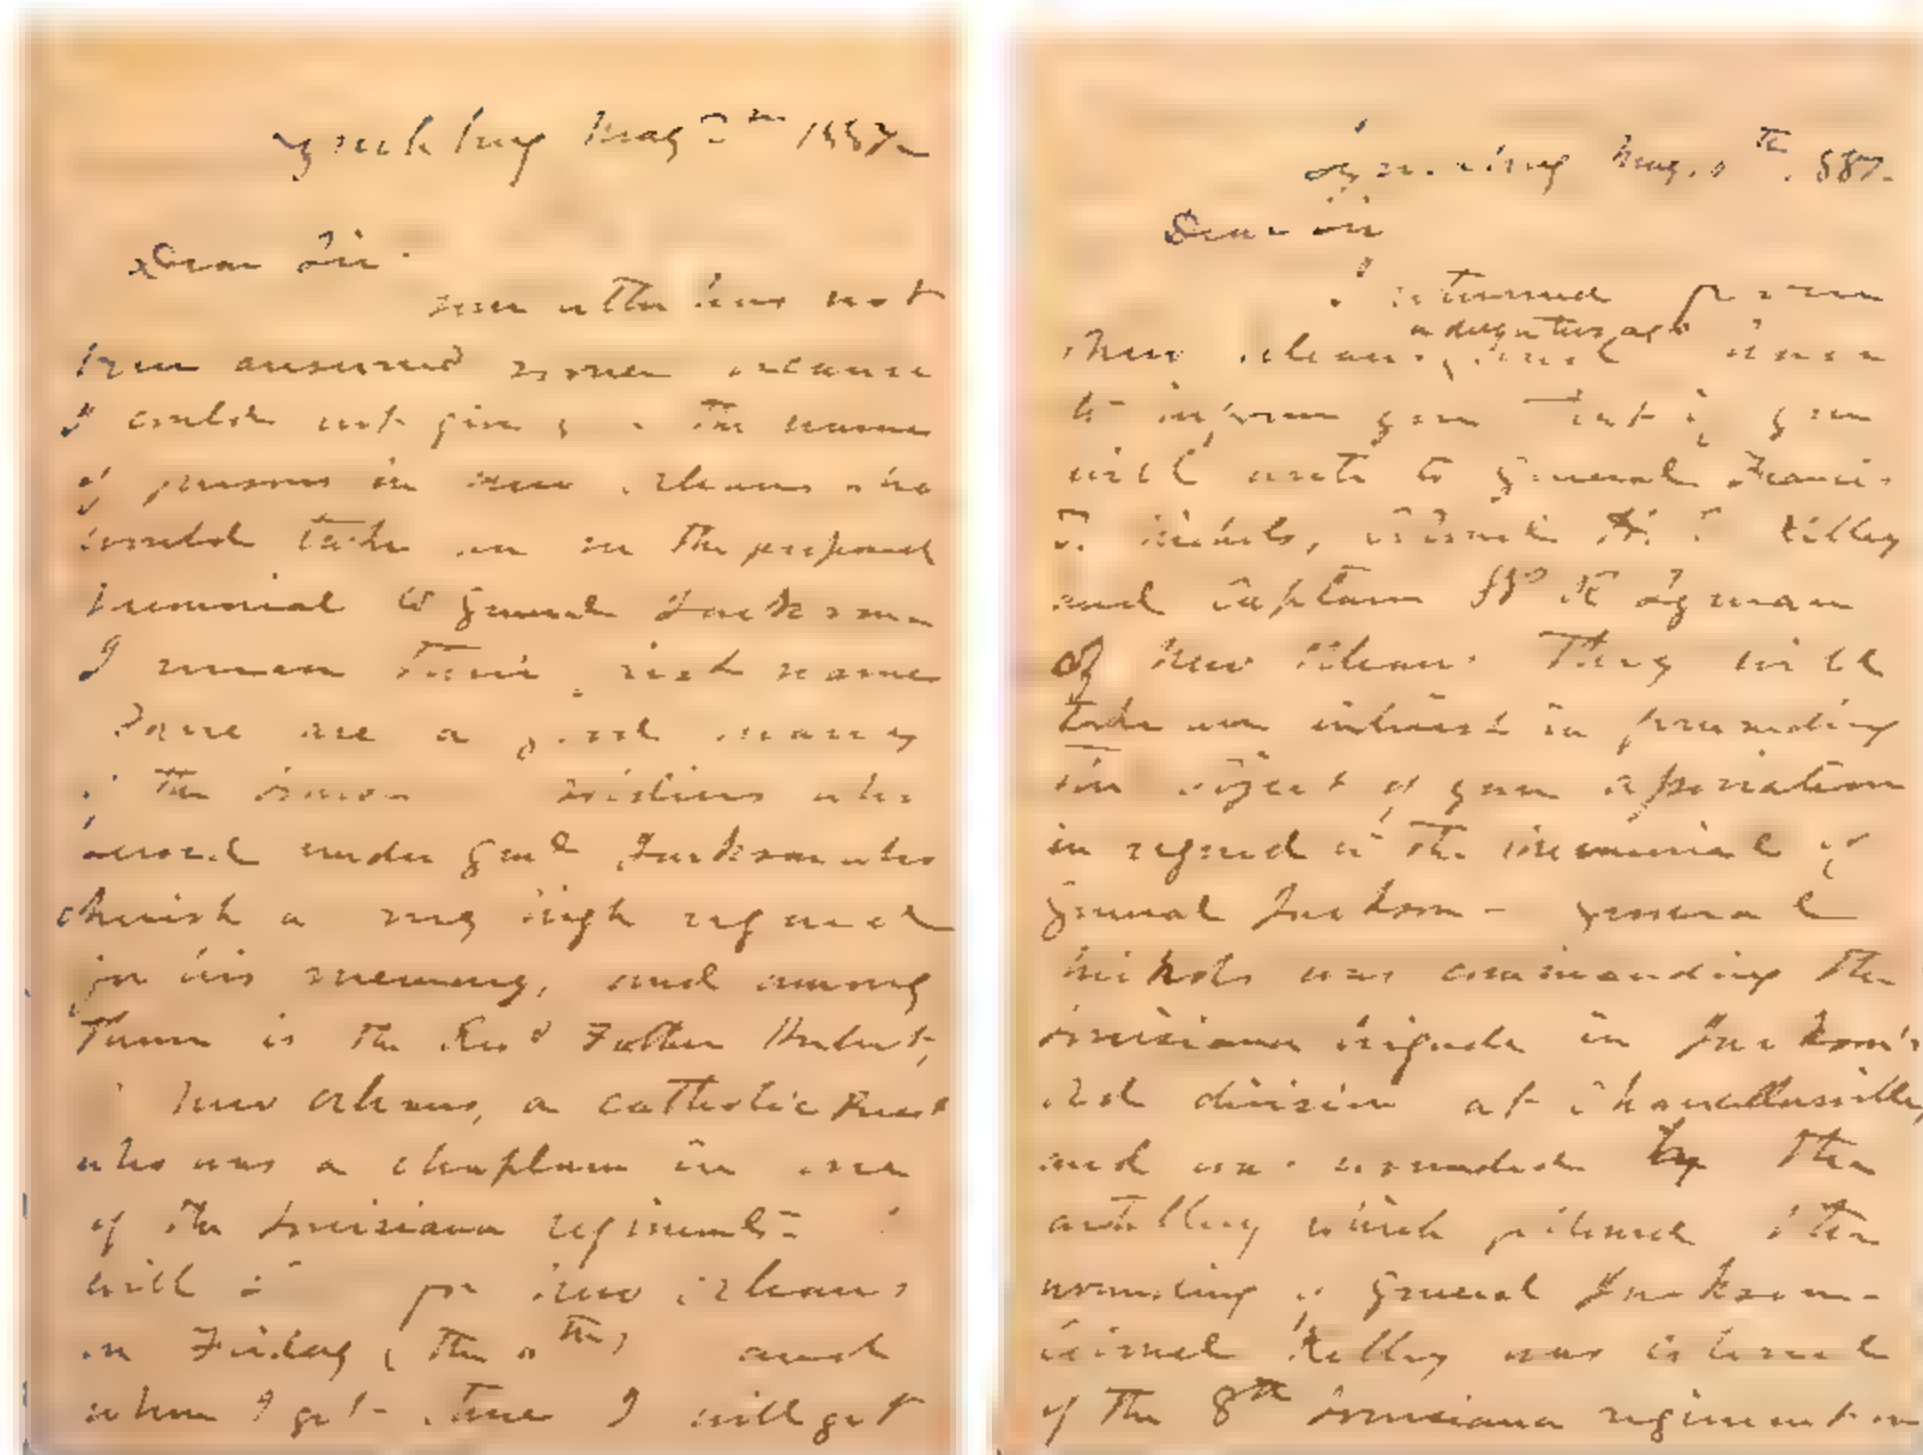 Lynchburg May 2nd 1887
Dear Sir
Your letter has not
been answered sooner because
I could not give you the names
of persons in New Orleans who
would take an in the proposed
memorial to General Jackson
I mean their first names
There are a good many
of the soldiers who
served under Genl Jackson who
cherish a very high regard
for his memory, and among
them is the Revd Father Hubert,
New Orleans, a catholic Priest
who was a chaplain in one
of the Louisiana regiments
will for New Orleans
on Friday (the th) and
when I get there I will get
Lynchburg May th 1887
Dear Sir
I returned from
New Orleans and
a day or two ago
to inform you that if you
will write to General Francis
T. Nichols, Colonel Kelley
and Captain Wm R Lyman
of New Orleans. They will
take an interest in promoting
the object of your association
in regard to the memorial of
General Jackson - General
Nichols was commanding the
Louisiana brigade in Jackson's
old division at Chancellorsville,
and was wounded by the
artillery which followed the
wounding of General Jackson-
Colonel Kelley was colonel
of the 8th Louisiana regiment